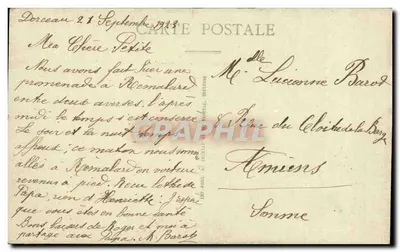 CARTE POSTALE
Dorceau 21 Septembre 1923
Ma Chère Petite
Nous avons fait hier une
promenade à Rémalard
entre deux averses. l'après
midi le temps s'est
Le jour et la nuit
ce matin nous
allés à Rémalard en voiture
revenus à pied. Reçu lettre de
Papa, rien d'Henriette. J'espère
que vous êtes en bonne santé.
Bons baisers de Roger et moi à
partager avec Papa. M. Barot
Mlle Lucienne Barot
8 Place du Cloître de la Barge
Amiens
Somme
CPAPHIL